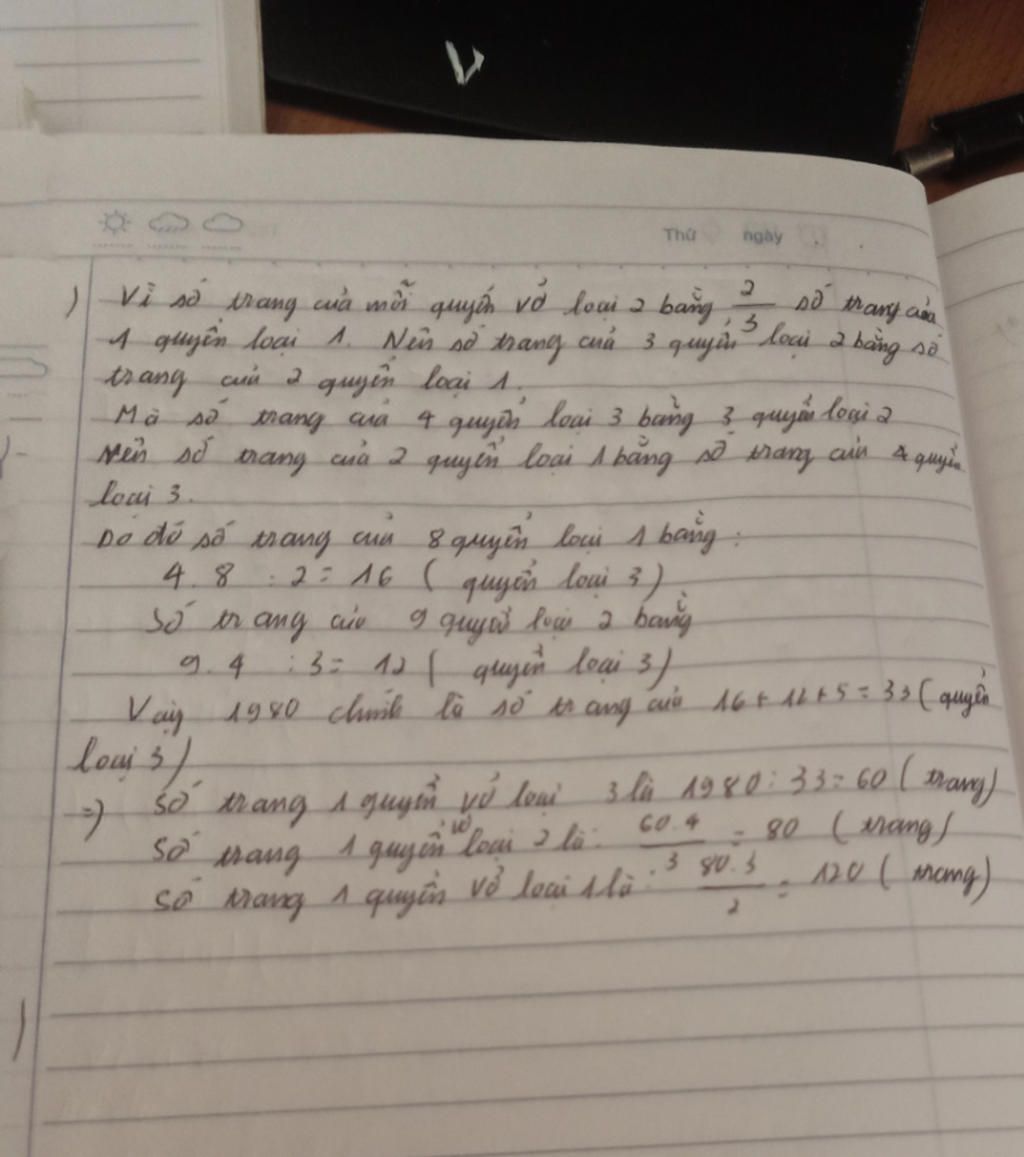 Thứ ngày
) Vì số trang của mỗi quyển vở loại 2 bằng 2/3 số trang của
1 quyển loại 1. Nên số trang của 3 quyển loại 2 bằng số
trang của 2 quyển loại 1.
Mà số trang của 4 quyển loại 3 bằng 3 quyển loại 2
Nên số trang của 2 quyển loại 1 bằng số trang của 4 quyển
loại 3.
Do đó số trang của 8 quyển loại 1 bằng :
4.8 : 2 = 16 ( quyển loại 3)
Số trang của 9 quyển loại 2 bằng
9.4 : 3 = 12 ( quyển loại 3)
Vậy 1980 chính là số trang của 16 + 12 + 5 = 33 ( quyển
loại 3)
=) Số trang 1 quyển vở loại 3 là 1980 : 33 = 60 ( trang)
Số trang 1 quyển vở loại 2 là : 60.4/3 = 80 ( trang)
Số trang 1 quyển vở loại 1 là : 80.3/2 = 120 ( trang)